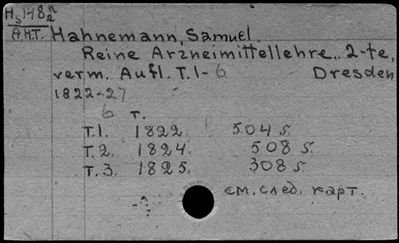 H 148
АНТ. Hahnemann, Samuel.
Reine Arzneimittellehre.. 2-te,
verm. Aufl. T. 1-6 Dresden
1822-27
6 т.
T.1. 1822. 504 s.
T.2. 1824. 508 s.
T.3. 1825. 308 s.
см. след. карт.